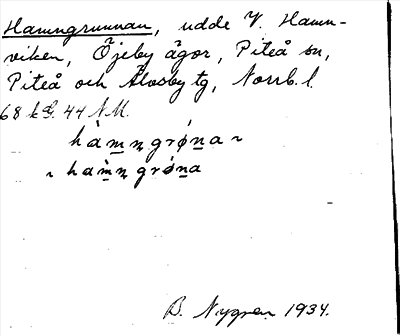 Hamngrunnan, udde V. Hamn-
viken, Öjeby ägor, Piteå sn,
Piteå och Älvsby tg, Norrb. l.
68 k G. 44 N M.
hàmngrǿna ~
~ hamǹgrǿna
B. Nygren 1934.